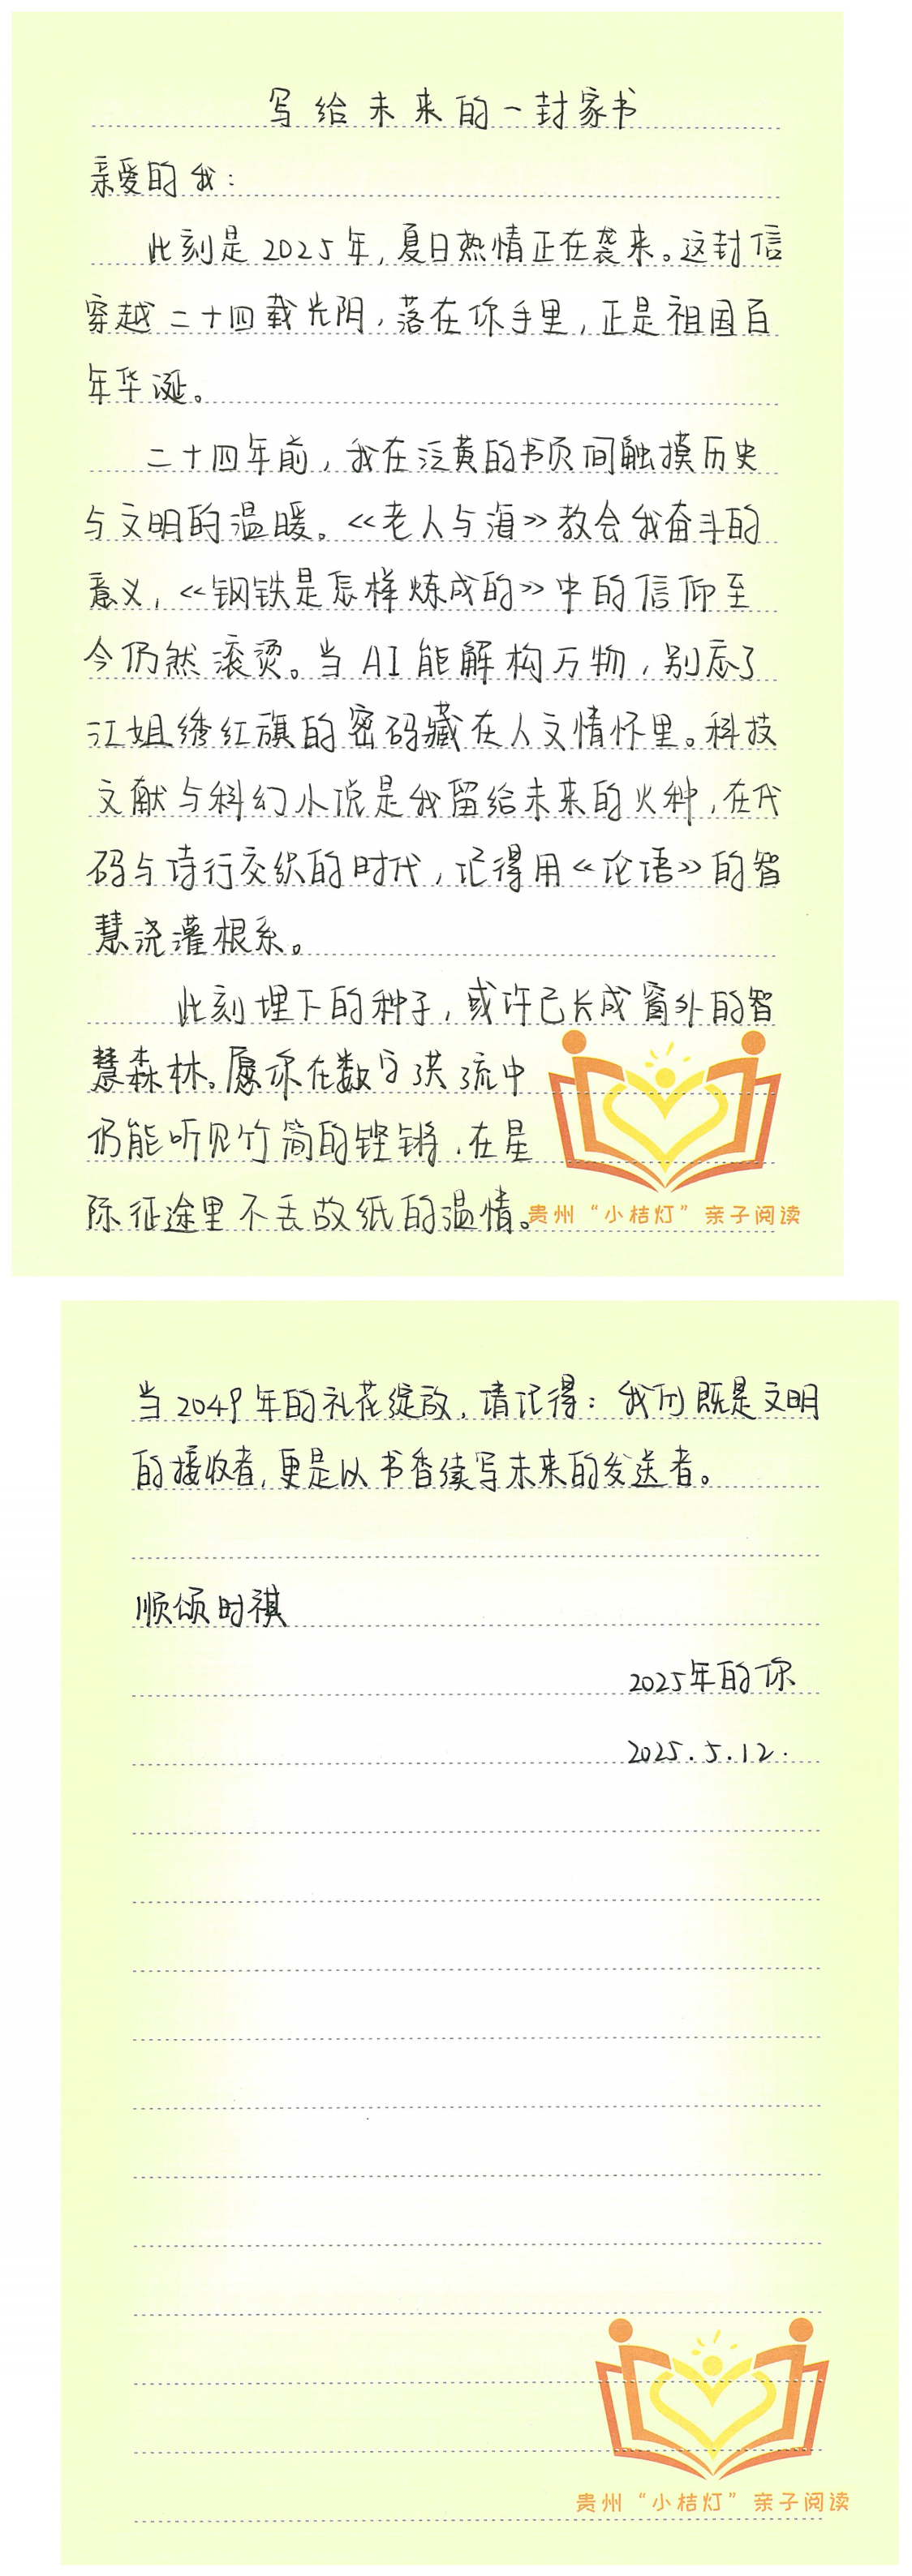 写给未来的一封家书
亲爱的我：
此刻是2025年，夏日热情正在袭来。这封信
穿越二十四载光阴，落在你手里，正是祖国百
年华诞。
二十四年前，我在泛黄的书页间触摸历史
与文明的温暖。《老人与海》教会我奋斗的
意义，《钢铁是怎样炼成的》中的信仰至
今仍然滚烫。当AI能解构万物，别忘了
江姐绣红旗的密码藏在人文情怀里。科技
文献与科幻小说是我留给未来的火种，在代
码与诗行交织的时代，记得用《论语》的智
慧浇灌根系。
此刻埋下的种子，或许已长成窗外的智
慧森林。愿你在数字洪流中
仍能听见竹简的铿锵，在星
际征途里不丢故纸的温情。
贵州“小桔灯”亲子阅读
当2049年的礼花绽放，请记得：我们既是文明
的接收者，更是以书香续写未来的发送者。
顺颂时祺
2025年的你
2025.5.12.
贵州“小桔灯”亲子阅读